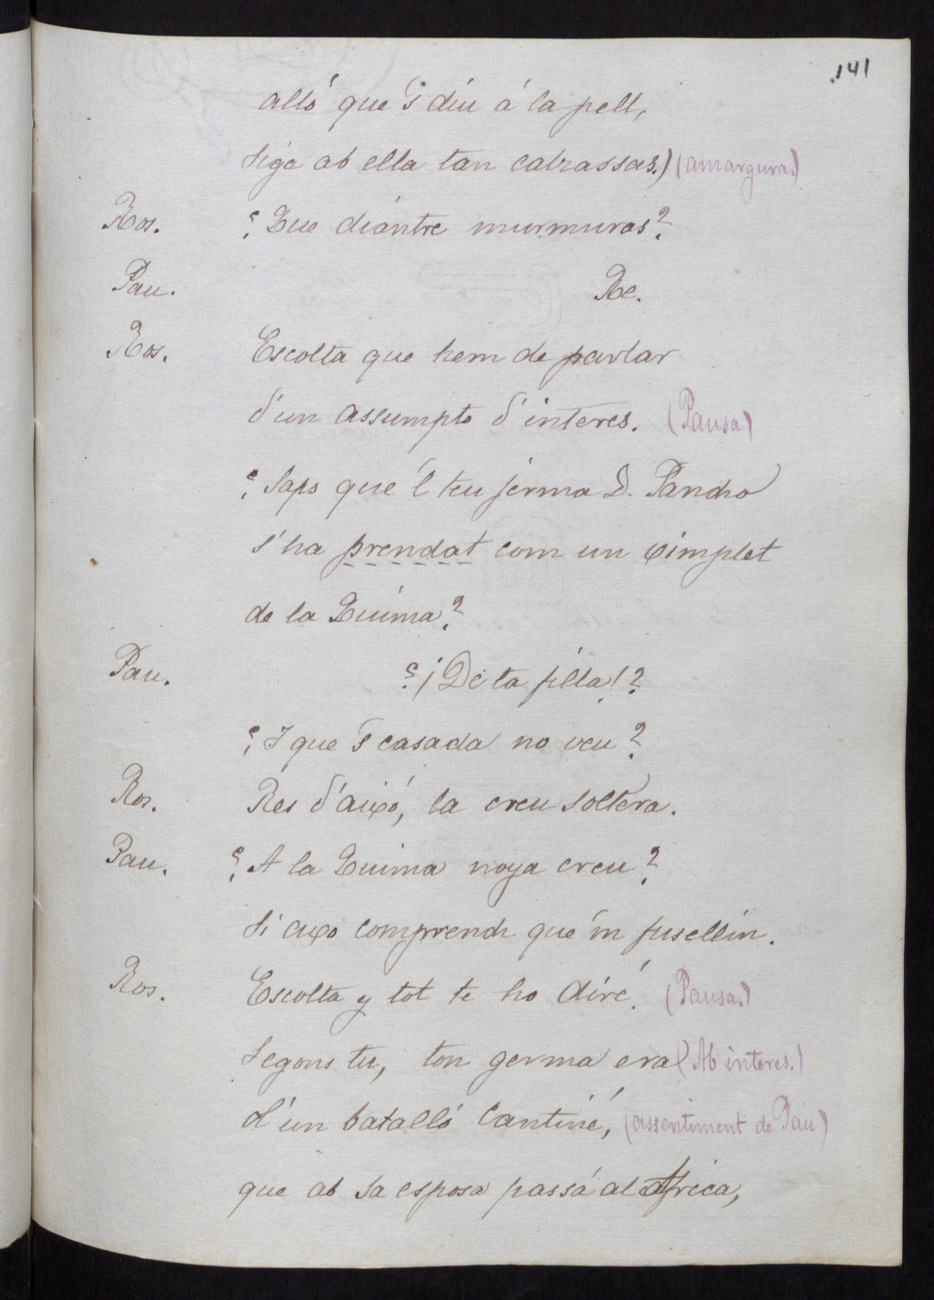 141
alló que 's diu á la pell,
siga ab ella tan calrassas.) (amargura.)
Ros. ¿Que diántre murmuras?
Pau. Re.
Ros. Escolta que hem de parlar
d'un assumpto d'interes. (Pausa)
¿Saps que 'l teu jerma D. Pancho
s'ha prendat com un ximplet
de la Quima?
Pau. ¿¡De ta filla!?
¿I que 's casada no veu?
Ros. Res d'aixó, la creu soltera.
Pau. ¿A la Quima noya creu?
Si aixo comprench que 'm fusellin.
Ros. Escolta y tot te ho diré. (Pausa.)
Segons tu, ton germa era (Ab interes.)
d'un batalló Cantiné, (assentiment de Pau)
que ab sa esposa passá al Africa,